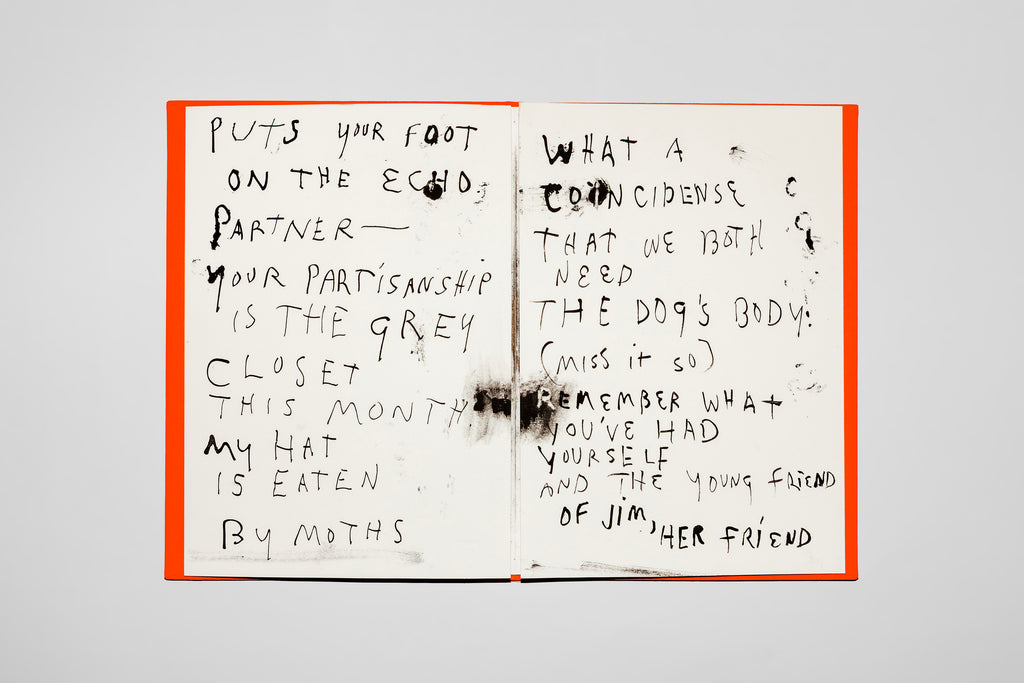 PUTS YOUR FOOT
ON THE ECHO
PARTNER—
YOUR PARTISANSHIP
IS THE GREY
CLOSET
THIS MONTH
MY HAT
IS EATEN
BY MOTHS
WHAT A
COINCIDENSE
THAT WE BOTH
NEED
THE DOG'S BODY:
(MISS it SO)
REMEMBER WHAT
YOU'VE HAD
YOURSELF
AND THE YOUNG FRIEND
OF JIM,
HER FRIEND